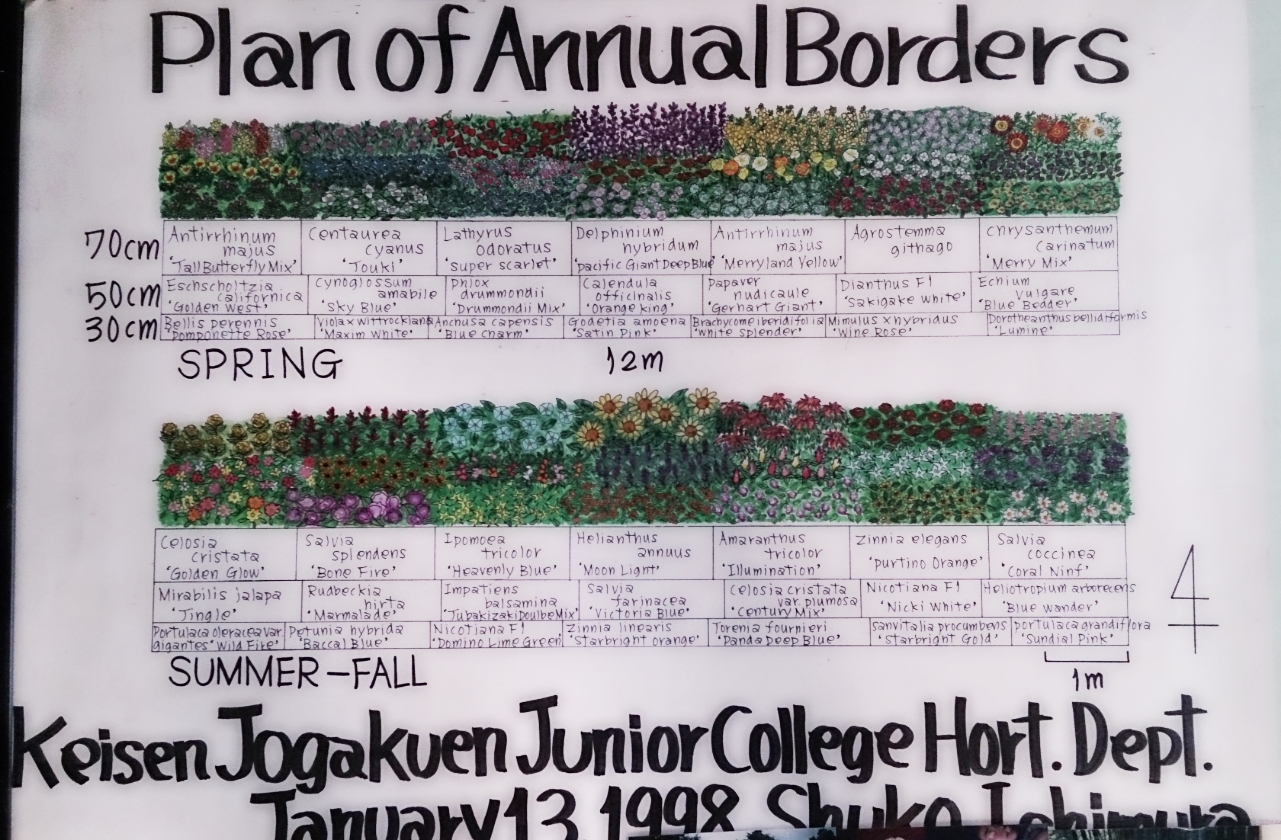 Plan of Annual Borders
70cm
Antirrhinum
majus
'Tall Butterfly Mix'
Centaurea
cyanus
'Touki'
Lathyrus
odoratus
'super scarlet'
Delphinium
hybridum
'pacific Giant Deep Blue'
Antirrhinum
majus
'Merryland Yellow'
Agrostemma
githago
chrysanthemum
carinatum
'Merry Mix'
50cm
Eschscholtzia
californica
'Golden West'
Cynoglossum
amabile
'Sky Blue'
Phlox
drummondii
'Drummondii Mix'
Calendula
officinalis
'Orange king'
Papaver
nudicaule
'Gerhart Giant'
Dianthus F1
'Sakigake White'
Echium
vulgare
'Blue Bedder'
30cm
Bellis perennis
'Pomponette Rose'
Viola x wittrockiana
'Maxim White'
Ancnusa capensis
'Blue Charm'
Godetia amoena
'Satin Pink'
Brachycome iberidifolia
'White Splender'
Mimulus x hybridus
'Wine Rose'
Dorotheanthus bellidiformis
'Lumine'
SPRING
12m
Celosia
cristata
'Golden Glow'
Salvia
splendens
'Bone Fire'
Ipomoea
tricolor
'Heavenly Blue'
Helianthus
annuus
'Moon Light'
Amaranthus
tricolor
'Illumination'
Zinnia elegans
'Purtino Orange'
Salvia
coccinea
'Coral Ninf'
Mirabilis jalapa
'Jingle'
Rudbeckia
hirta
'Marmalade'
Impatiens
balsamina
'Tubakizaki Doulbe Mix'
Salvia
farinacea
'Victoria Blue'
Celosia cristata
var. plumosa
'Century Mix'
Nicotiana F1
'Nicki White'
Heliotropium arborecens
'Blue wander'
Portulaca oleracea var.
gigantes 'Wild Fire'
Petunia hybrida
'Baccal Blue'
Nicotiana F1
'Domino Lime Green'
Zinnia linearis
'Starbright orange'
Torenia fournieri
'Panda Deep Blue'
Sanvitalia procumbens
'Starbright Gold'
portulaca grandiflora
'Sundial Pink'
SUMMER-FALL
1m
4
Keisen Jogakuen Junior College Hort. Dept.
January 13, 1998 Shuko Ichimura